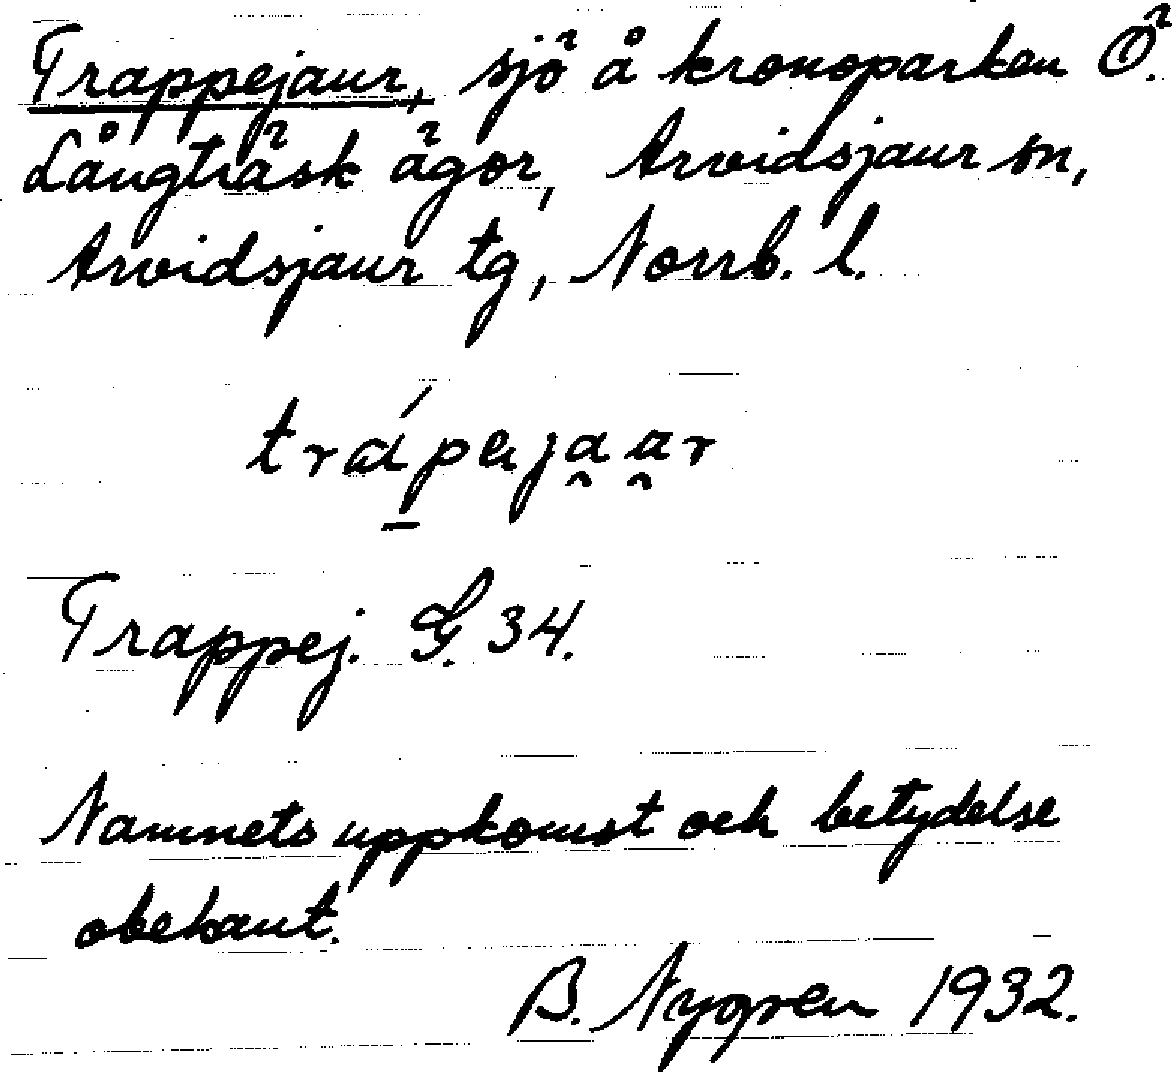 Trappejaur, sjö å kronoparken Ö.
Långträsk ägor, Arvidsjaur sn,
Arvidsjaur tg, Norrb. l.
Trappej. G. 34.
Namnets uppkomst och betydelse
obekant.
B. Nygren 1932.